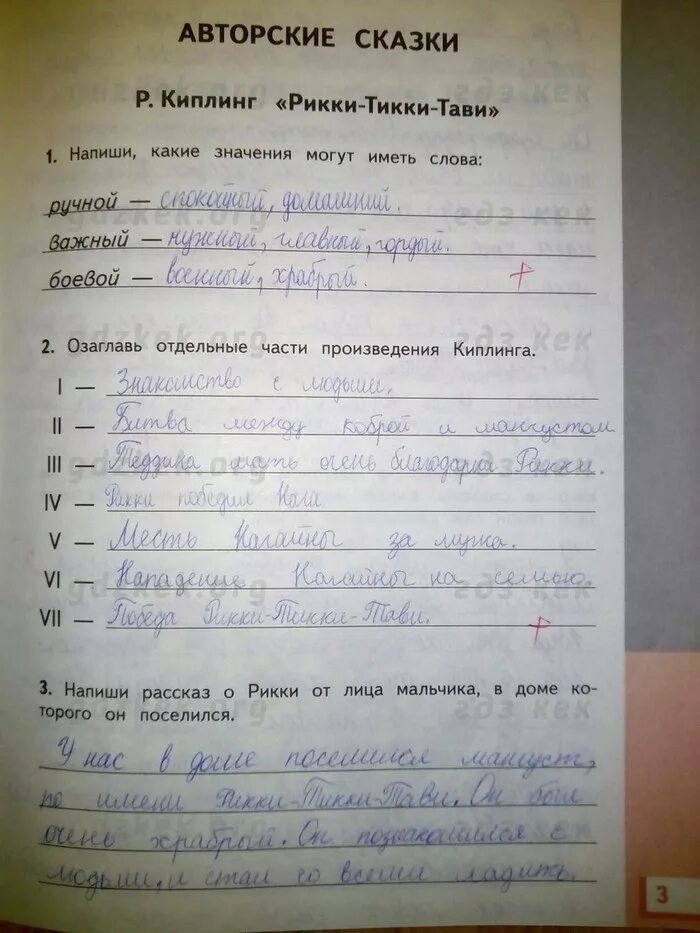 АВТОРСКИЕ СКАЗКИ
Р. Киплинг «Рикки-Тикки-Тави»
1. Напиши, какие значения могут иметь слова:
ручной — спокойный, домашний.
важный — нужный, главный, гордый.
боевой — военный, храбрый.
2. Озаглавь отдельные части произведения Киплинга.
I — Знакомство с людьми.
II — Битва между коброй и мангустом
III — Теддина мать очень благодарна Рикки.
IV — Рикки победил Нага
V — Месть Нагайны за мужа.
VI — Нападение Нагайны на семью.
VII — Победа Рикки-Тикки-Тави.
3. Напиши рассказ о Рикки от лица мальчика, в доме ко-
торого он поселился.
У нас в доме поселился мангуст,
по имени Рикки-Тикки-Тави. Он был
очень храбрый. Он познакомился с
людьми, и стал со всеми ладить.
3